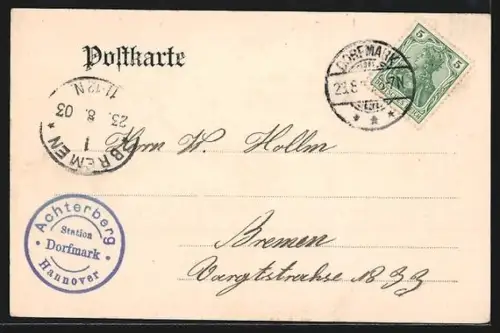 Postkarte
5 5
DORFMARK
23.8. 7N
BREMEN
1
23. 8. 03
11-12 N.
Herrn W. Hollm
Achterberg
Station
Dorfmark
Hannover
Bremen